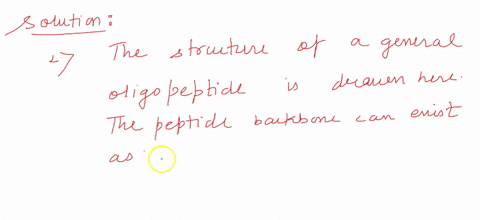 Solution:
27 The structure of a general
oligopeptide is drawn here.
The peptide backbone can exist
as :